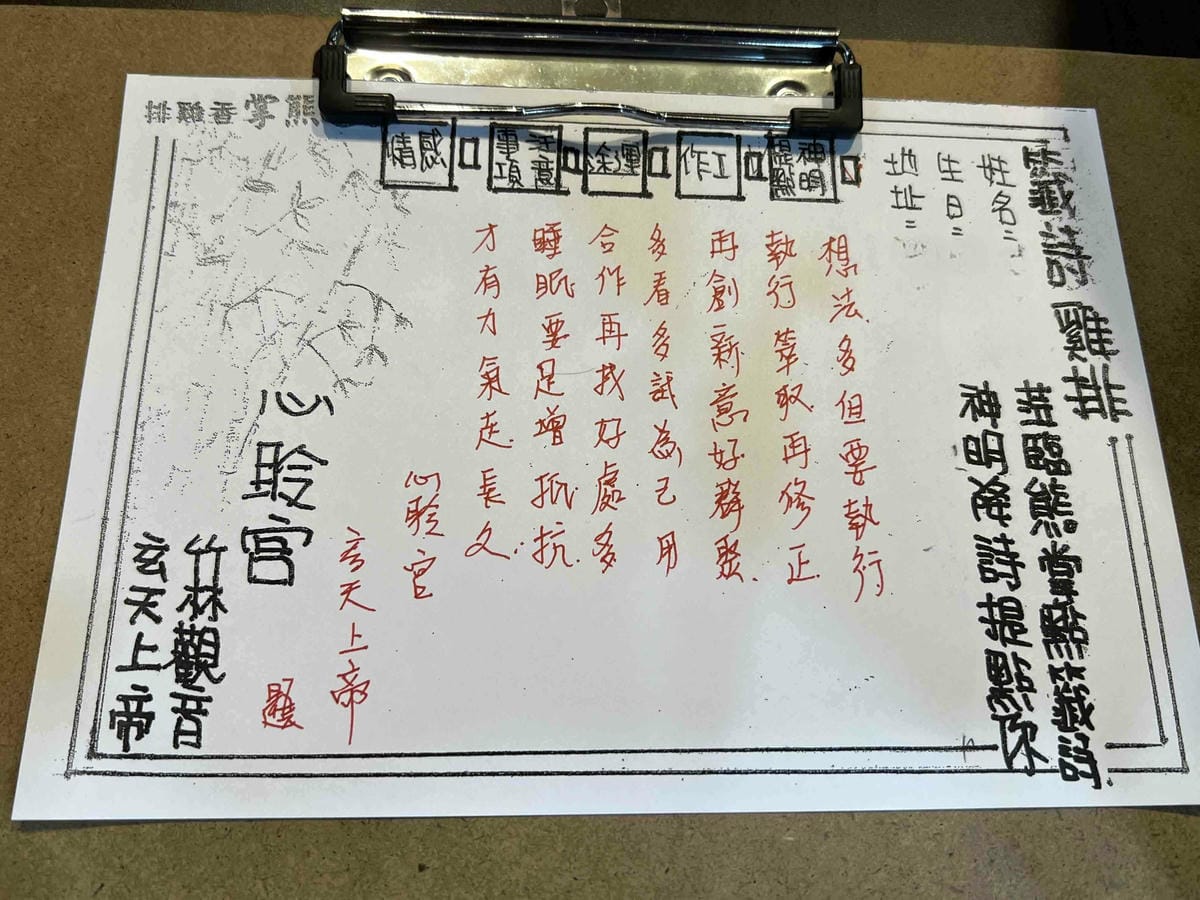 籤詩 雞排
姓名:
生日:
地址:
神明提點
工作
運途
注意事項
感情
想法多但要執行
執行萃取再修正
再創新意好群聚
多看多試為己用
合作再找好處多
睡眠要足增抵抗
才有力氣走長久
心聆宮
玄天上帝
題
心聆宮
竹林觀音
玄天上帝
熊掌香雞排